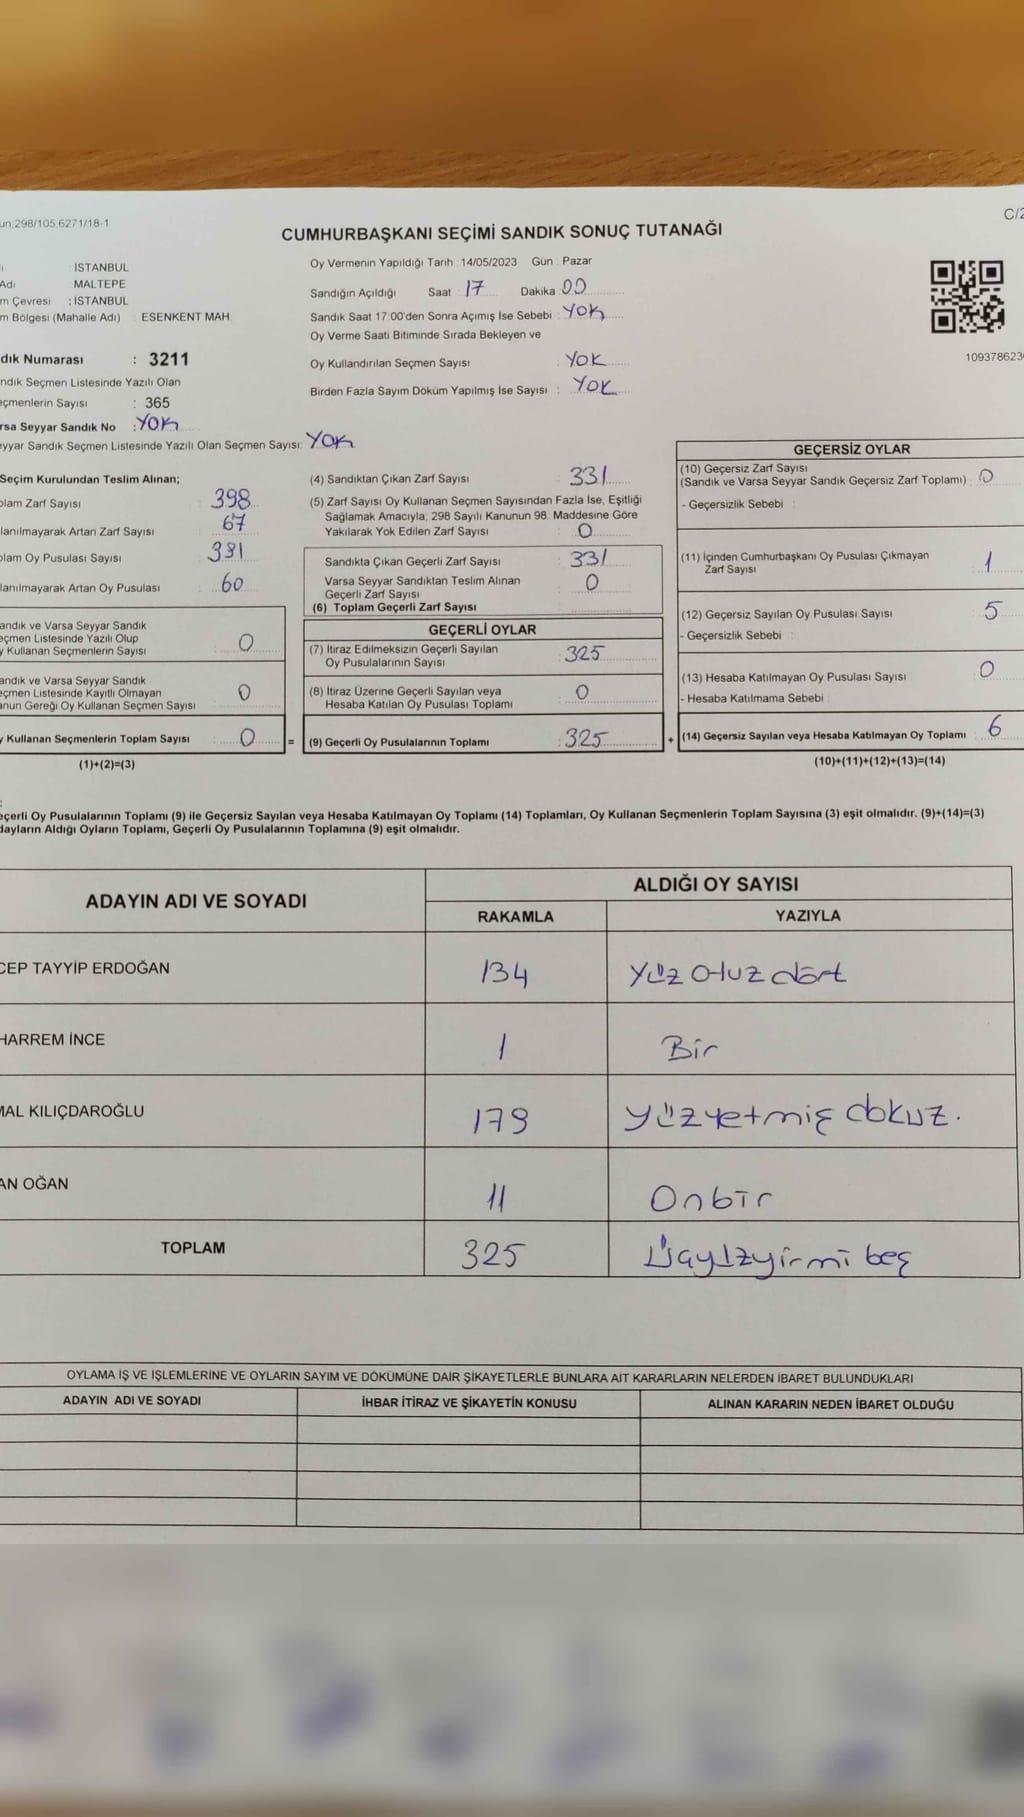 un:298/105,6271/18-1
C/2
CUMHURBAŞKANI SEÇİMİ SANDIK SONUÇ TUTANAĞI
İSTANBUL
Adı MALTEPE
m Çevresi : İSTANBUL
m Bölgesi (Mahalle Adı) ESENKENT MAH.
dık Numarası : 3211
ndık Seçmen Listesinde Yazılı Olan
eçmenlerin Sayısı : 365
rsa Seyyar Sandık No : YOK
eyyar Sandık Seçmen Listesinde Yazılı Olan Seçmen Sayısı: YOK
Oy Vermenin Yapıldığı Tarih : 14/05/2023 Gün : Pazar
Sandığın Açıldığı Saat : 17 Dakika : 00
Sandık Saat 17:00'den Sonra Açımış İse Sebebi : YOK
Oy Verme Saati Bitiminde Sırada Bekleyen ve
Oy Kullandırılan Seçmen Sayısı : YOK
Birden Fazla Sayım Döküm Yapılmış İse Sayısı : YOK
109378623
Seçim Kurulundan Teslim Alınan;
plam Zarf Sayısı : 398
lanılmayarak Artan Zarf Sayısı : 67
lam Oy Pusulası Sayısı : 391
lanılmayarak Artan Oy Pusulası : 60
andık ve Varsa Seyyar Sandık
eçmen Listesinde Yazılı Olup
y Kullanan Seçmenlerin Sayısı : 0
andık ve Varsa Seyyar Sandık
eçmen Listesinde Kayıtlı Olmayan
anun Gereği Oy Kullanan Seçmen Sayısı : 0
y Kullanan Seçmenlerin Toplam Sayısı : 0 =
(1)+(2)=(3)
(4) Sandıktan Çıkan Zarf Sayısı : 331
(5) Zarf Sayısı Oy Kullanan Seçmen Sayısından Fazla İse, Eşitliği
Sağlamak Amacıyla, 298 Sayılı Kanunun 98. Maddesine Göre
Yakılarak Yok Edilen Zarf Sayısı : 0
Sandıkta Çıkan Geçerli Zarf Sayısı : 331
Varsa Seyyar Sandıktan Teslim Alınan
Geçerli Zarf Sayısı : 0
(6) Toplam Geçerli Zarf Sayısı
GEÇERLİ OYLAR
(7) İtiraz Edilmeksizin Geçerli Sayılan
Oy Pusulalarının Sayısı : 325
(8) İtiraz Üzerine Geçerli Sayılan veya
Hesaba Katılan Oy Pusulası Toplamı : 0
(9) Geçerli Oy Pusulalarının Toplamı : 325 +
GEÇERSİZ OYLAR
(10) Geçersiz Zarf Sayısı
(Sandık ve Varsa Seyyar Sandık Geçersiz Zarf Toplamı) : 0
- Geçersizlik Sebebi :
(11) İçinden Cumhurbaşkanı Oy Pusulası Çıkmayan
Zarf Sayısı : 1
(12) Geçersiz Sayılan Oy Pusulası Sayısı : 5
- Geçersizlik Sebebi :
(13) Hesaba Katılmayan Oy Pusulası Sayısı : 0
- Hesaba Katılmama Sebebi :
(14) Geçersiz Sayılan veya Hesaba Katılmayan Oy Toplamı : 6
(10)+(11)+(12)+(13)=(14)
eçerli Oy Pusulalarının Toplamı (9) ile Geçersiz Sayılan veya Hesaba Katılmayan Oy Toplamı (14) Toplamları, Oy Kullanan Seçmenlerin Toplam Sayısına (3) eşit olmalıdır. (9)+(14)=(3)
dayların Aldığı Oyların Toplamı, Geçerli Oy Pusulalarının Toplamına (9) eşit olmalıdır.
ADAYIN ADI VE SOYADI
ALDIĞI OY SAYISI
RAKAMLA YAZIYLA
CEP TAYYİP ERDOĞAN 134 Yüz Otuz dört
HARREM İNCE 1 Bir
MAL KILIÇDAROĞLU 179 yüzyetmiş dokuz.
AN OĞAN 11 Onbir
TOPLAM 325 Üçyüzyirmi beş
OYLAMA İŞ VE İŞLEMLERİNE VE OYLARIN SAYIM VE DÖKÜMÜNE DAİR ŞİKAYETLERLE BUNLARA AİT KARARLARIN NELERDEN İBARET BULUNDUKLARI
ADAYIN ADI VE SOYADI İHBAR İTİRAZ VE ŞİKAYETİN KONUSU ALINAN KARARIN NEDEN İBARET OLDUĞU